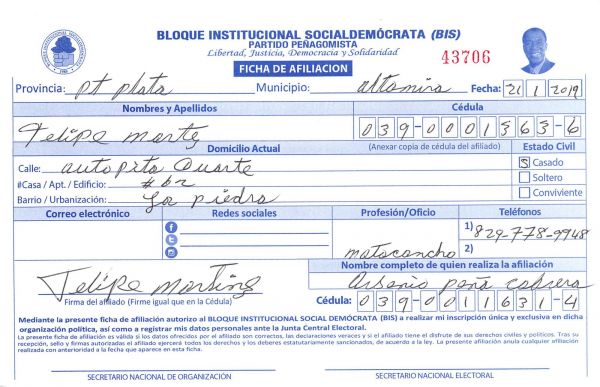 BLOQUE INSTITUCIONAL SOCIALDEMÓCRATA (BIS)
PARTIDO PEÑAGOMISTA
Libertad, Justicia, Democracia y Solidaridad
43706
FICHA DE AFILIACION
Provincia: pt plata Municipio: altamira Fecha: 21 1 2019
Nombres y Apellidos Cédula
Felipe Marte 039-0001363-6
Domicilio Actual (Anexar copia de cédula del afiliado) Estado Civil
Calle: autopita Duarte Casado
#Casa / Apt. / Edificio: #62 Soltero
Barrio / Urbanización: La piedra Conviviente
Correo electrónico Redes sociales Profesión/Oficio Teléfonos
1) 829-778-9948
2)
Nombre completo de quien realiza la afiliación
Felipe Martinez Arsenio peña cabrera
Firma del afiliado (Firme igual que en la Cédula) Cédula: 039-0011631-4
Mediante la presente ficha de afiliación autorizo al BLOQUE INSTITUCIONAL SOCIAL DEMÓCRATA (BIS) a realizar mi inscripción única y exclusiva en dicha
organización política, así como a registrar mis datos personales ante la Junta Central Electoral.
La presente ficha de afiliación es válida si los datos ofrecidos por el afiliado son correctos, las declaraciones veraces y si el afiliado tiene el disfrute de sus derechos civiles y políticos. Tras su
recepción, sello y firmas autorizadas el afiliado ejercerá todos los derechos y los deberes estatutariamente sancionados, de acuerdo a la ley. La presente afiliación anula cualquier afiliación
realizada con anterioridad a la fecha que aparece en esta ficha.
SECRETARIO NACIONAL DE ORGANIZACIÓN SECRETARIO NACIONAL ELECTORAL